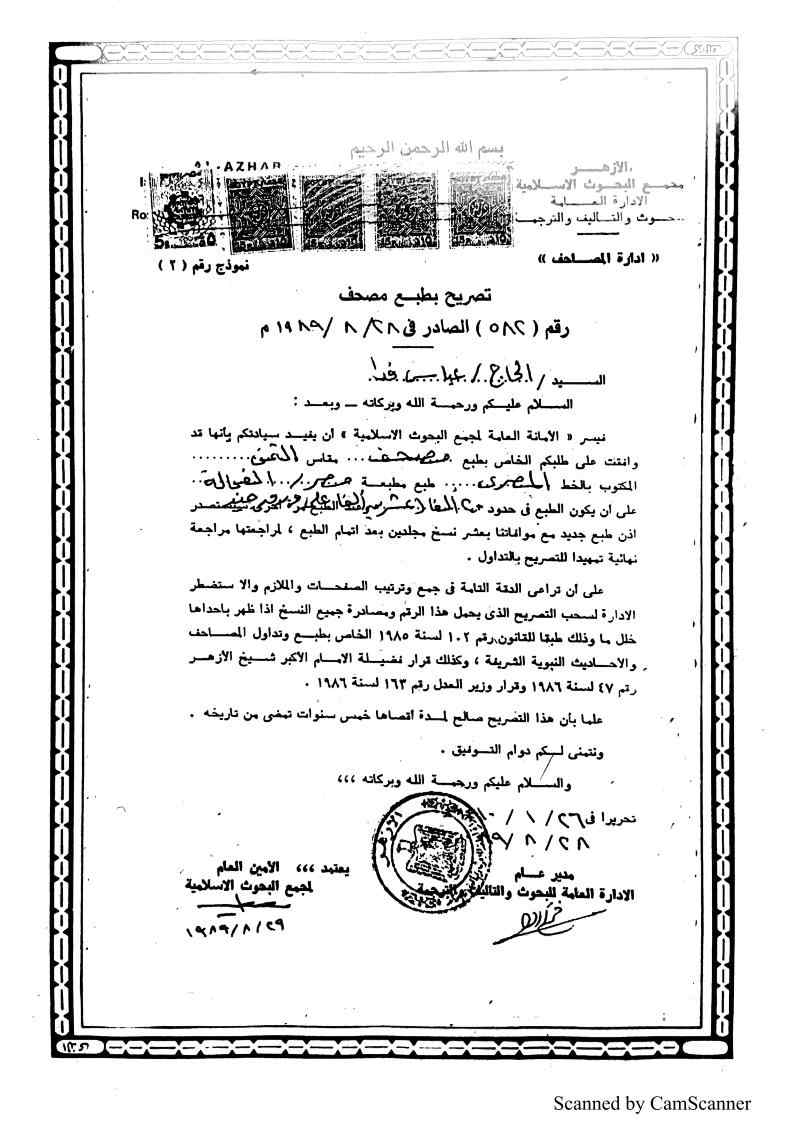 بسم الله الرحمن الرحيم
AL-AZHAR
الأزهــر
مجمع البحوث الاسلامية
الادارة العــامة
للبحوث والتأليف والترجمــة
« ادارة المصــاحف »
نموذج رقم ( ٢ )
تصريح بطبــع مصحف
رقم ( ٥٨٢ ) الصادر فى ٢٨ / ٨ / ١٩٨٩ م
السـيد / الحاج / عباس
السـلام عليكم ورحمة الله وبركاته ــ وبعد :
تيسر « الأمانة العامة لمجمع البحوث الاسلامية » أن يفيد سيادتكم بأنها قد
وافقت على طلبكم الخاص بطبع مصحف ... مقاس الثمن .........
المكتوب بالخط المصرى ..... طبع مطبعة مصر / الفجالة ..
على أن يكون الطبع فى حدود
اذن طبع جديد مع موافاتنا بعشر نسخ مجلدين بعد اتمام الطبع ، لمراجعتها مراجعة
نهائية تمهيدا للتصريح بالتداول .
على أن تراعى الدقة التامة فى جمع وترتيب الصفحات والملازم والا ستضطر
الادارة لسحب التصريح الذى يحمل هذا الرقم ومصادرة جميع النسخ اذا ظهر باحداها
خلل ما وذلك طبقا للقانون رقم ١٠٢ لسنة ١٩٨٥ الخاص بطبع وتداول المصــاحف
والاحاديث النبوية الشريفة ، وكذلك قرار فضيلة الامام الأكبر شــيخ الأزهـر
رقم ٤٧ لسنة ١٩٨٦ وقرار وزير العدل رقم ١٦٣ لسنة ١٩٨٦ .
علما بأن هذا التصريح صالح لمدة أقصاها خمس سنوات تمضى من تاريخه .
ونتمنى لــكم دوام التــوفيق .
والسـلام عليكم ورحمـة الله وبركاته ،،،
تحريرا فى ٢٦ / ١ /
٢٨ / ٨ /
الأزهــر
مدير عــام
الادارة العامة للبحوث والتأليف والترجمة
يعتمد ،،، الأمين العام
لمجمع البحوث الاسلامية
٢٩ / ٨ / ١٩٨٩
Scanned by CamScanner